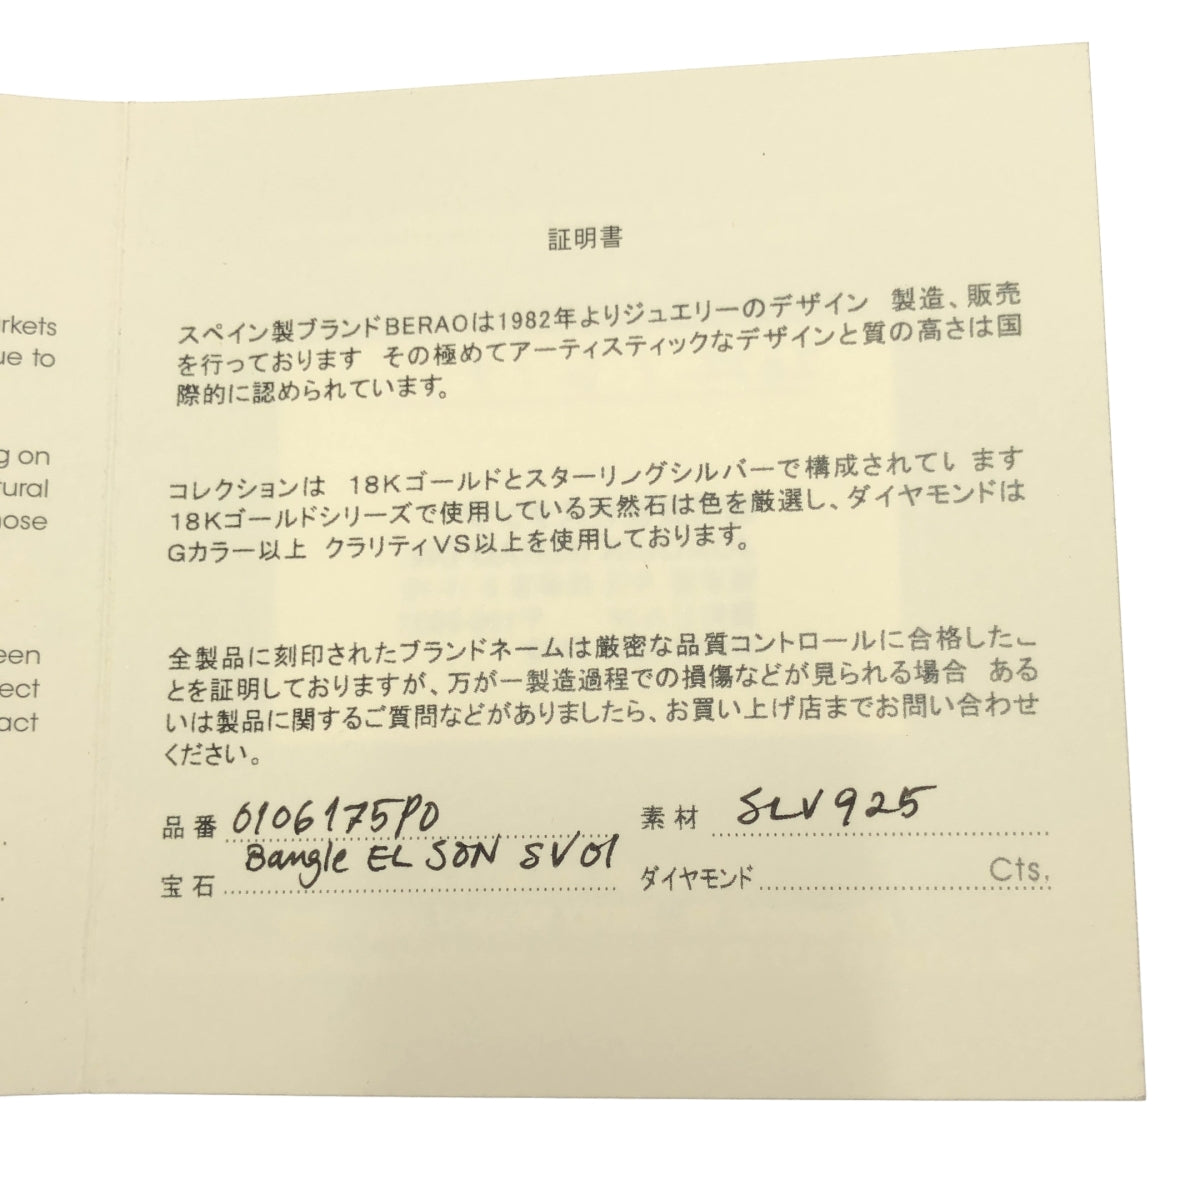 rkets
ue to
g on
tural
ose
een
ect
act
証明書
スペイン製ブランドBERAOは1982年よりジュエリーのデザイン 製造、販売
を行っております その極めてアーティスティックなデザインと質の高さは国
際的に認められています。
コレクションは 18Kゴールドとスターリングシルバーで構成されてい ます
18Kゴールドシリーズで使用している天然石は色を厳選し、ダイヤモンドは
Gカラー以上 クラリティVS以上を使用しております。
全製品に刻印されたブランドネームは厳密な品質コントロールに合格したこ
とを証明しておりますが、万が一製造過程での損傷などが見られる場合 ある
いは製品に関するご質問などがありましたら、お買い上げ店までお問い合わせ
ください。
品番 0106175PO 素材 SLV925
Bangle EL SON SV01
宝石 ダイヤモンド Cts,